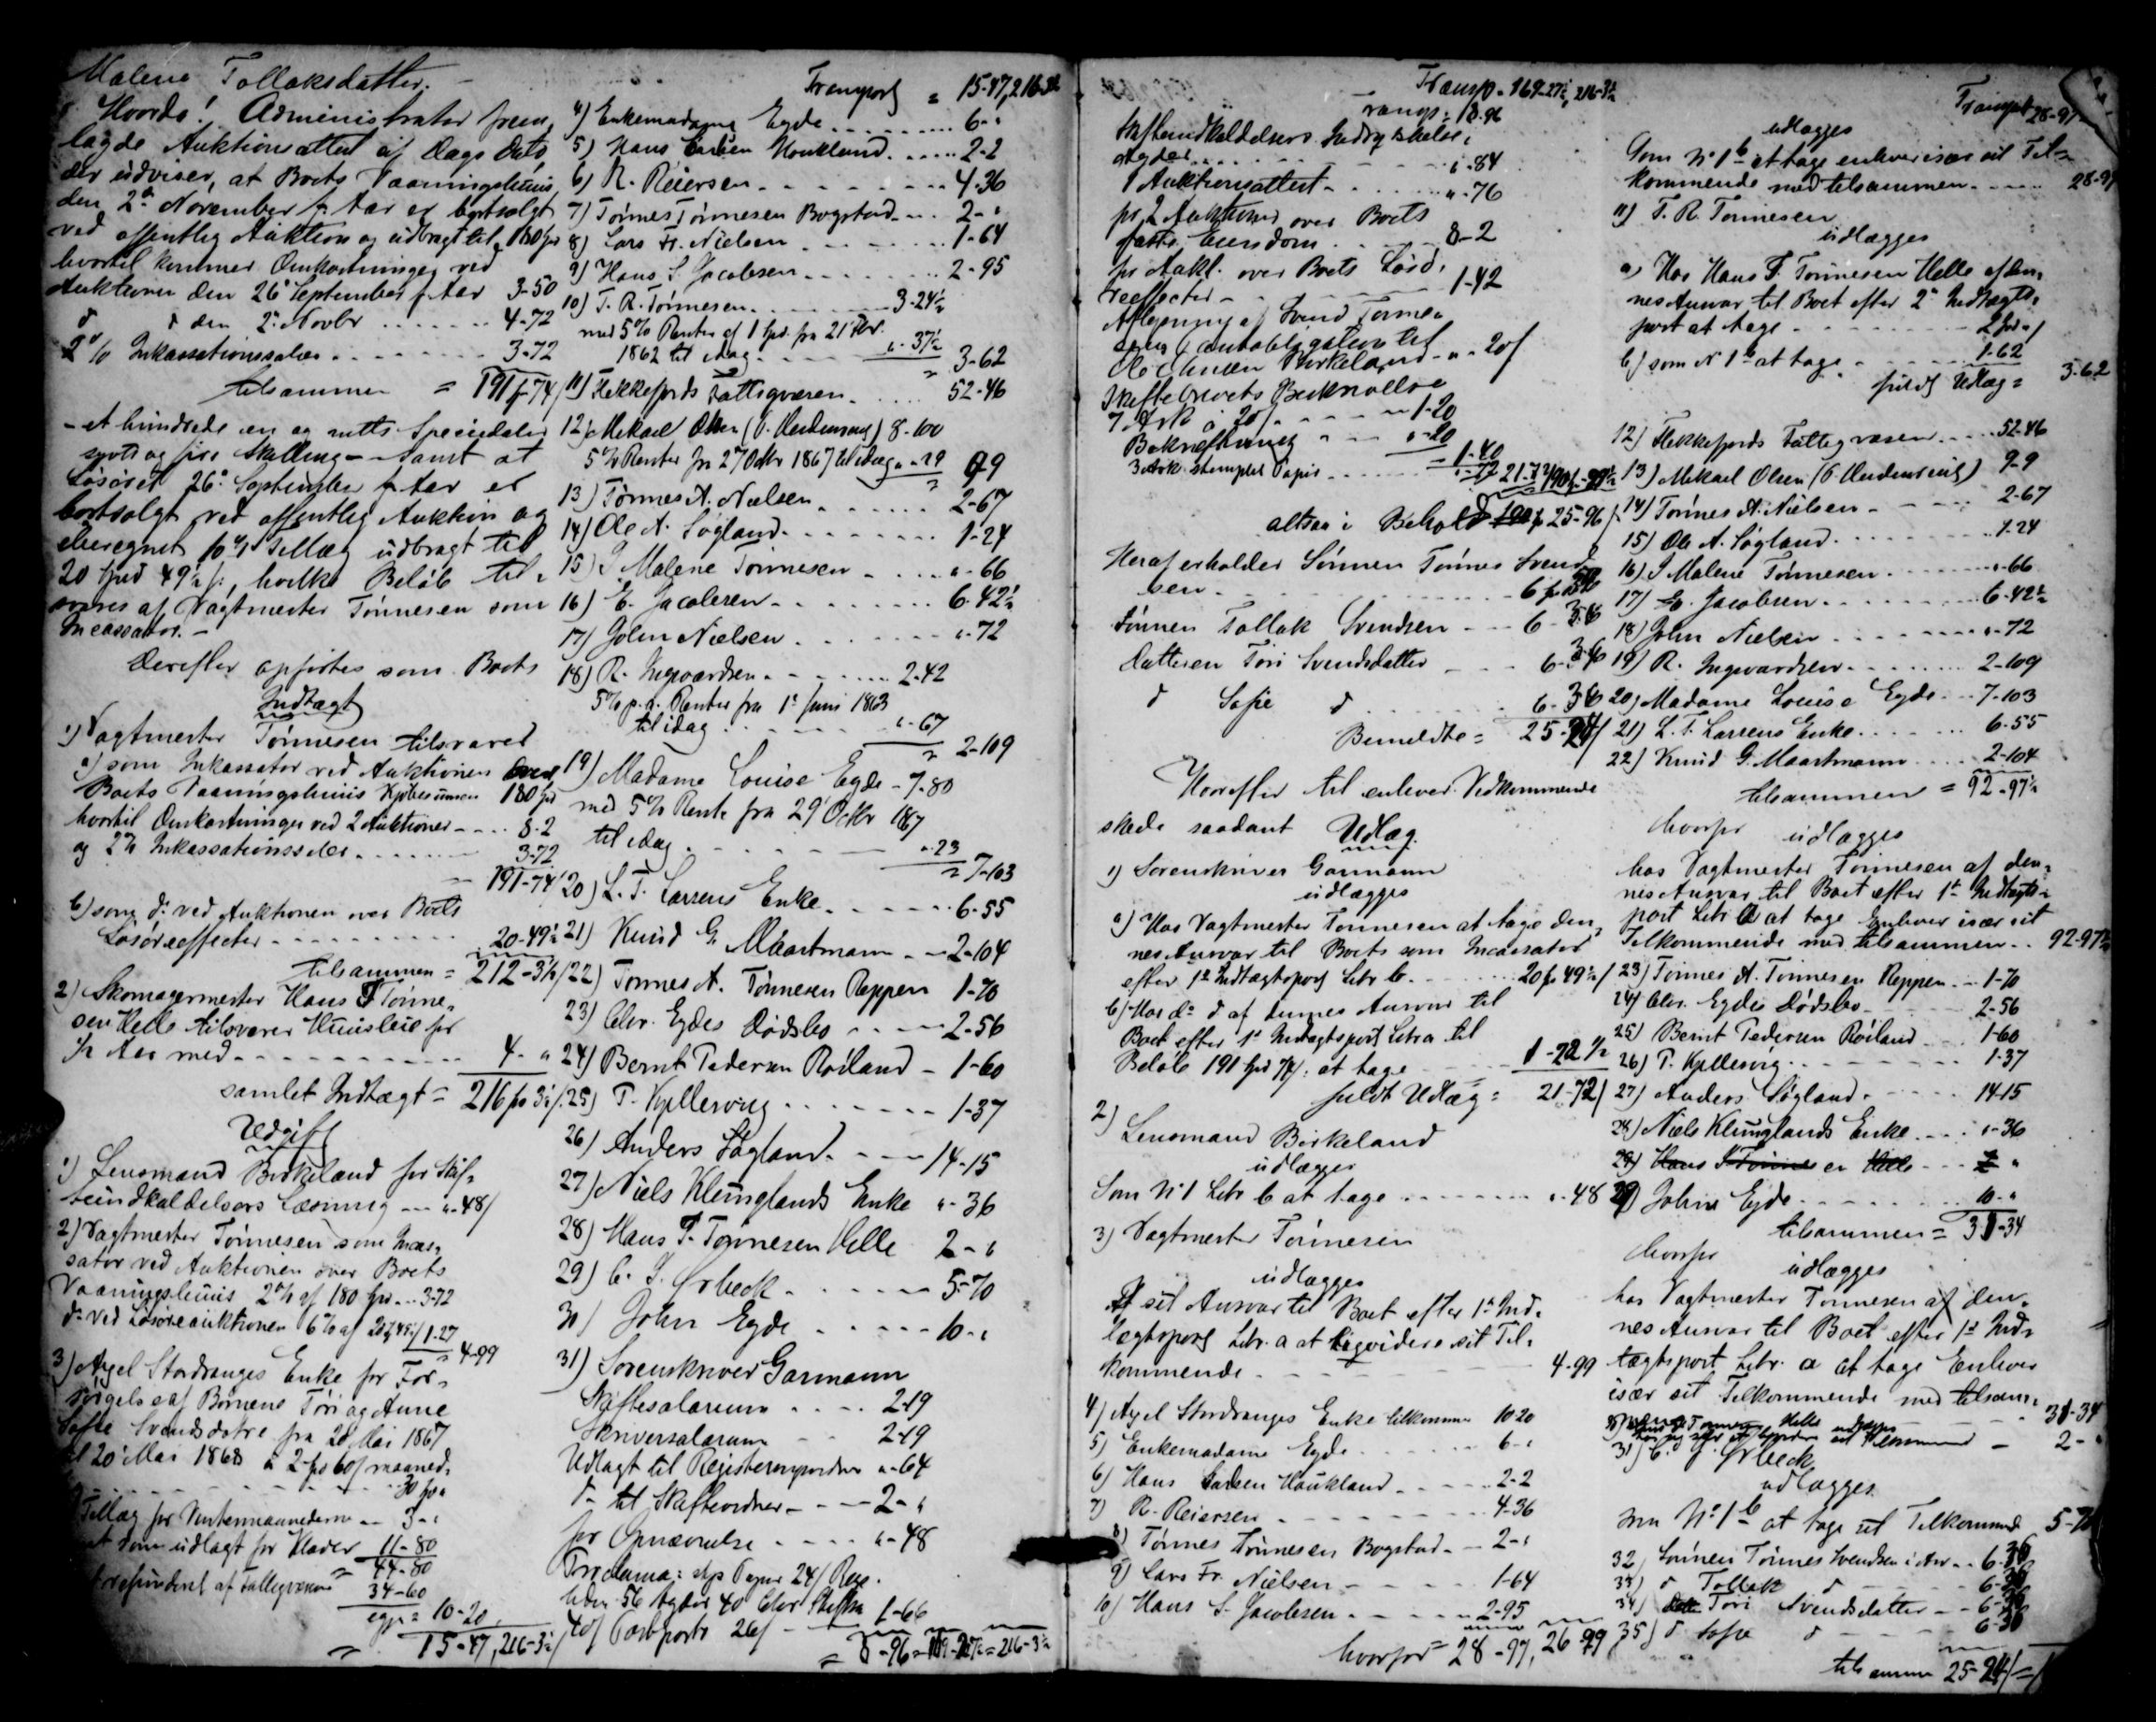 Malene Tollaksdatter. –
Hvorda! Administrator frem,
lagde Auktionsattest af Dags Dato
der udviser, at Boets Vaaningshuus
den 2den November f. Aar er bortsolgt
ved offentlig Auktion og udbragt til 180 spd
hvortil kommer Omkostninger ved
Auktionen den 26' September f. Aar 3-50
d d den 2' Novbr 4-72
2% Inkassationssalær 3-72
tilsammen = 191 - 74
– et hundrede en og nitti Speciedaler
sytti og fire Skilling – samt at
Løsøret 26' September f. Aar er
bortsolgt ved offentlig Auktion og
iberegnet 10% Tillæg udbragt til
20 Spd 49½ s:, hvilke Beløb til-
svares af Vagtmester Tønnesen som
Incassator. –
Derefter opførtes som Boets
Indtægt
1) Vagtmester Tønnesen tilsvarer
a) som Inkassator ved Auktionen over
Boets Vaaningshuus Kjøbesummen 180 spd
hvortil Omkostninger ved 2 Auktioner - 8-2
og 2% Inkassationssalær 3-72
191-74
b) som d: ved Auktionen over Boets
Løsøreeffecter 20-49½
tilsammen = 212-3½
2) Skomagermester Hans T Tønne-
sen Helle tilsvarer Huusleie for
½ Aar med 4- "
samlet Indtægt = 216 spd 3½
Udgift
1) Lensmand Birkeland for Skif-
teindkaldelsers Læsning - "-48
2) Vagtmester Tønnesen som Incas-
sator ved Auktionen over Boets
Vaaningshuus 2% af 180 spd - 3-72
d: ved Løsøreauktionen 6% af 20 49½ 1-27
= 4-99
3) Axel Stordranges Enke for For-
sørgelse af Børnene Tøri og Anne
Sofie Svendsdøtre fra 20 Mai 1867
til 20' Mai 1868 à 2 spd 60 s maaned-
30 spd "
Tillæg for Vintermaanederne - 3-"
samt som udlagt for Klæder 11-80
= 44-80
refunderet af Fattigvæsenet 34-60
igjen = 10-20
= 15-47, 216-3½
Transport = 15-47, 216-3½
4) Enkemadame Egde 6-"
5) Hans Larsen Houkland 2-2
6) R. Reiersen 4-36
7) Tønnes Tønnesen Bogstad 2-"
8) Lars Fr. Nielsen 1-64
9) Hans S. Jacobsen 2-95
10) T. R. Tønnesen 3-24½
med 5% Renter af 1 spd. fra 21'
1862 til idag "-37½
= 3-62
11) Flekkefjords Fattigvæsen 52-46
12) Mikael Olsen (V. Hedemnning) 8-100
5% Renter fra 27 Octbr 1867 til idag "-29 9-9
13) Tønnes A. Nielsen 2-67
14) Ole A. Søgland 1-24
15) S Malene Tønnesen "-66
16) E. Jacobsen 6-42½
17) John Nielsen "-72
18) R. Ingvardsen 2-42
5% p. a. Renter fra 1' Juni 1863
til idag "-67
= 2-109
19) Madame Louise Egde - 7-80
med 5% Rente fra 29' Octbr 1867
til idag "-23
= 7-103
20) L. T. Larsens Enke 6-55
21) Knud G. Maartmann - 2-104
22) Tønnes A. Tønnesen Reppen 1-70
23) Chr. Egdes Dødsbo 2-56
24) Bernt Pedersen Røiland - 1-60
25) T. Kjellesvig 1-37
26) Anders Søgland 14-15
27) Niels Klunglands Enke "-36
28) Hans T. Tønnesen Helle 2-"
29) C. J. Ørbeck 5-70
30) John Egde 10-"
31) Sorenskriver Garmann
Skiftesalarium 2-19
Skriversalarium 2-19
Udlagt til Registerenforordn "-64
d- til Skifteordner - 2-"
for Opnævnelse "-48
Proclama: Papir 24 s
56 Agder 40 Chr. 1-66
40 s Postporto 26 s
= 8-96 = 169-27½ = 216-3½
Transp. 169-27½, 216-3½
Transp. = 8-96
Skifteindkaldelsers Indrykkelse i
Agder "-84
1 Auktionsattest "-76
for 2 Auktioner over Boets
faste Eiendom 8-2
for Aukt. over Boets Løsø-
reeffecter 1-42
Aflysning af Svend Tønne-
sens Panteobligation til
Birkeland - "-20 s
Skiftebrevets Beskrivelse
7 Ark à 20 s 1-20
Bekræftning "-20
= 1-40
3 Ark stemplet Papir "-72 21-72 190-99½
altsaa i Behold 25-24
Heraf erholder Sønnen Tønnes Svend-
sen 6 36
Sønnen Tollak Svendsen - 6-36
Datteren Tøri Svendsdatter - 6-36
d Sofie d 6-36
Bemeldte = 25-24
Hvorefter til enhver Vedkommende
skede saadant Udlæg
1) Sorenskriver Garmann
udlægges
a) Hos Vagtmester Tønnesen at tage den-
nes Ansvar til Boet som Incassator
efter 1ste Indtægtspost Litr b 20 spd 49½
b) Hos d: d af dennes Ansvar til
Boet efter 1ste Indtægtspost Litr a til
Beløb 191 spd 74 s: at tage 1-22½
fuldt Udlæg = 21-72
2) Lensmand Birkeland
udlægges
Som No 1 Litr b at tage "-48
3) Vagtmester Tønnesen
udlægges
Af sit Ansvar til Boet efter 1ste Ind-
tægtspost Litr. a at liqvidere sit Til-
kommende 4-99
4) Axel Stordranges Enke tilkommer 10-20
5) Enkemadame Egde 6-"
6) Hans Larsen Haukland 2-2
7) R. Reiersen 4-36
8) Tønnes Tønnesen Bogstad - 2-"
9) Lars Fr. Nielsen 1-64
10) Hans S. Jacobsen 2-95
hvorfor = 28-97, 26-99
Transpt 28-97
udlægges
Som No 1 b at tage enhver især sit Til-
kommende med tilsammen 28-97
11) T. R. Tønnesen
udlægges
a) Hos Hans T. Tønnesen Helle af den-
nes Ansvar til Boet efter 2' Indtægts-
post at tage 2 spd "
b) som No 1 b at tage 1-62
fuldt Udlæg = 3-62
12) Flekkefjords Fattigvæsen 52-46
13) Mikael Olsen 9-9
14) Tønnes A. Nielsen 2-67
15) Ole A. Søgland 1-24
16) S Malene Tønnesen "-66
17) E. Jacobsen 6-42½
18) John Nielsen "-72
19) R. Ingvardsen 2-109
20) Madame Louise Egde 7-103
21) L. T. Larsens Enke 6-55
22) Knud G. Maartmann 2-104
tilsammen = 92-97½
hvorfor udlægges
hos Vagtmester Tønnesen af den-
nes Ansvar til Boet efter 1ste Indtægts-
post Litr a at tage Enhver især sit
Tilkommende med tilsammen 92-97½
23) Tønnes A. Tønnesen Reppen - 1-70
24) Chr. Egdes Dødsbo 2-56
25) Bernt Pedersen Røiland 1-60
26) T. Kjellesvig 1-37
27) Anders Søgland 14-15
28) Niels Klunglands Enke "-36
29) Hans T Tønnesen Helle 2 "
29) John Egde 10-"
tilsammen = 31-34
hvorfor udlægges
hos Vagtmester Tønnesen af den-
nes Ansvar til Boet efter 1ste Ind-
tægtspost Litr. a at tage Enhver
især sit Tilkommende med tilsam-
men 31-34
Tønnesen Helle udlægges
2-"
31) C. J. Ørbeck
udlægges
som No 1 b at tage sit Tilkommende 5-70
32) Sønnen Tønnes Svendsen i Arv 6-36
33) d Tollak d 6-36
34) Datt Tøri Svendsdatter 6-36
35) d Sofie d 6-36
tilsammen 25-24